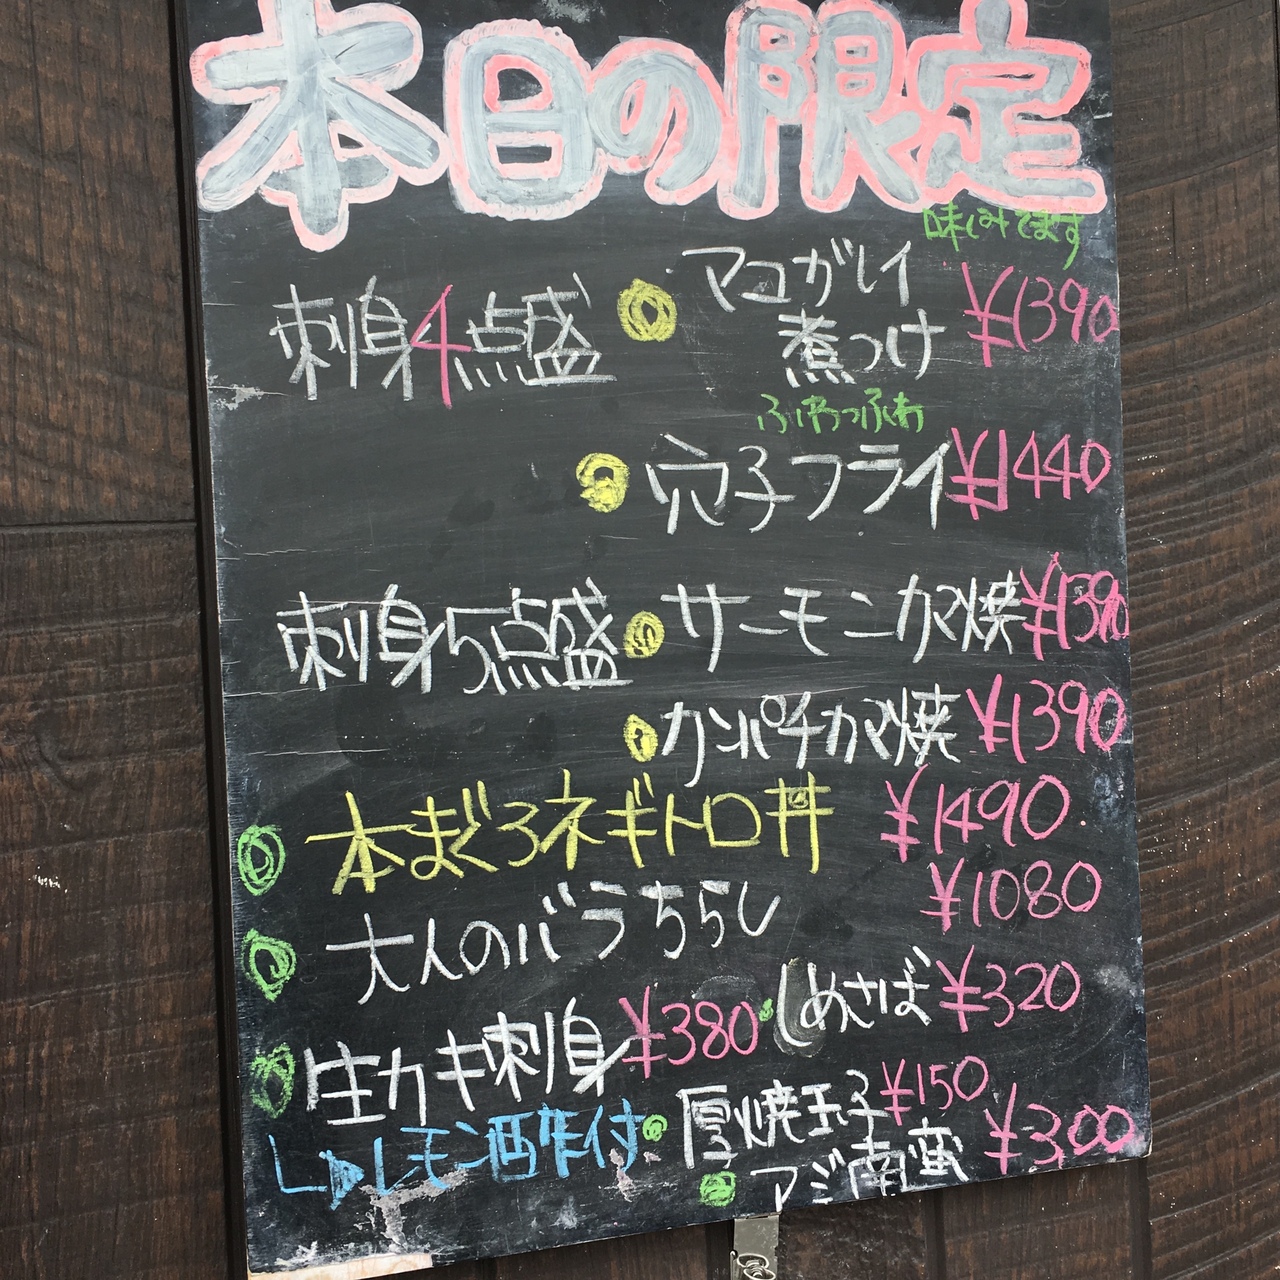 本日の限定
味しみてます
刺身4点盛
マコガレイ
煮つけ ¥1390
ふわっふわ
穴子フライ ¥1440
刺身5点盛
サーモンカマ焼 ¥1390
カンパチカマ焼 ¥1390
本まぐろネギトロ丼 ¥1490
大人のバラちらし ¥1080
生カキ刺身 ¥380
しめさば ¥320
レモン酒付
厚焼玉子 ¥150
アジ南蛮 ¥300